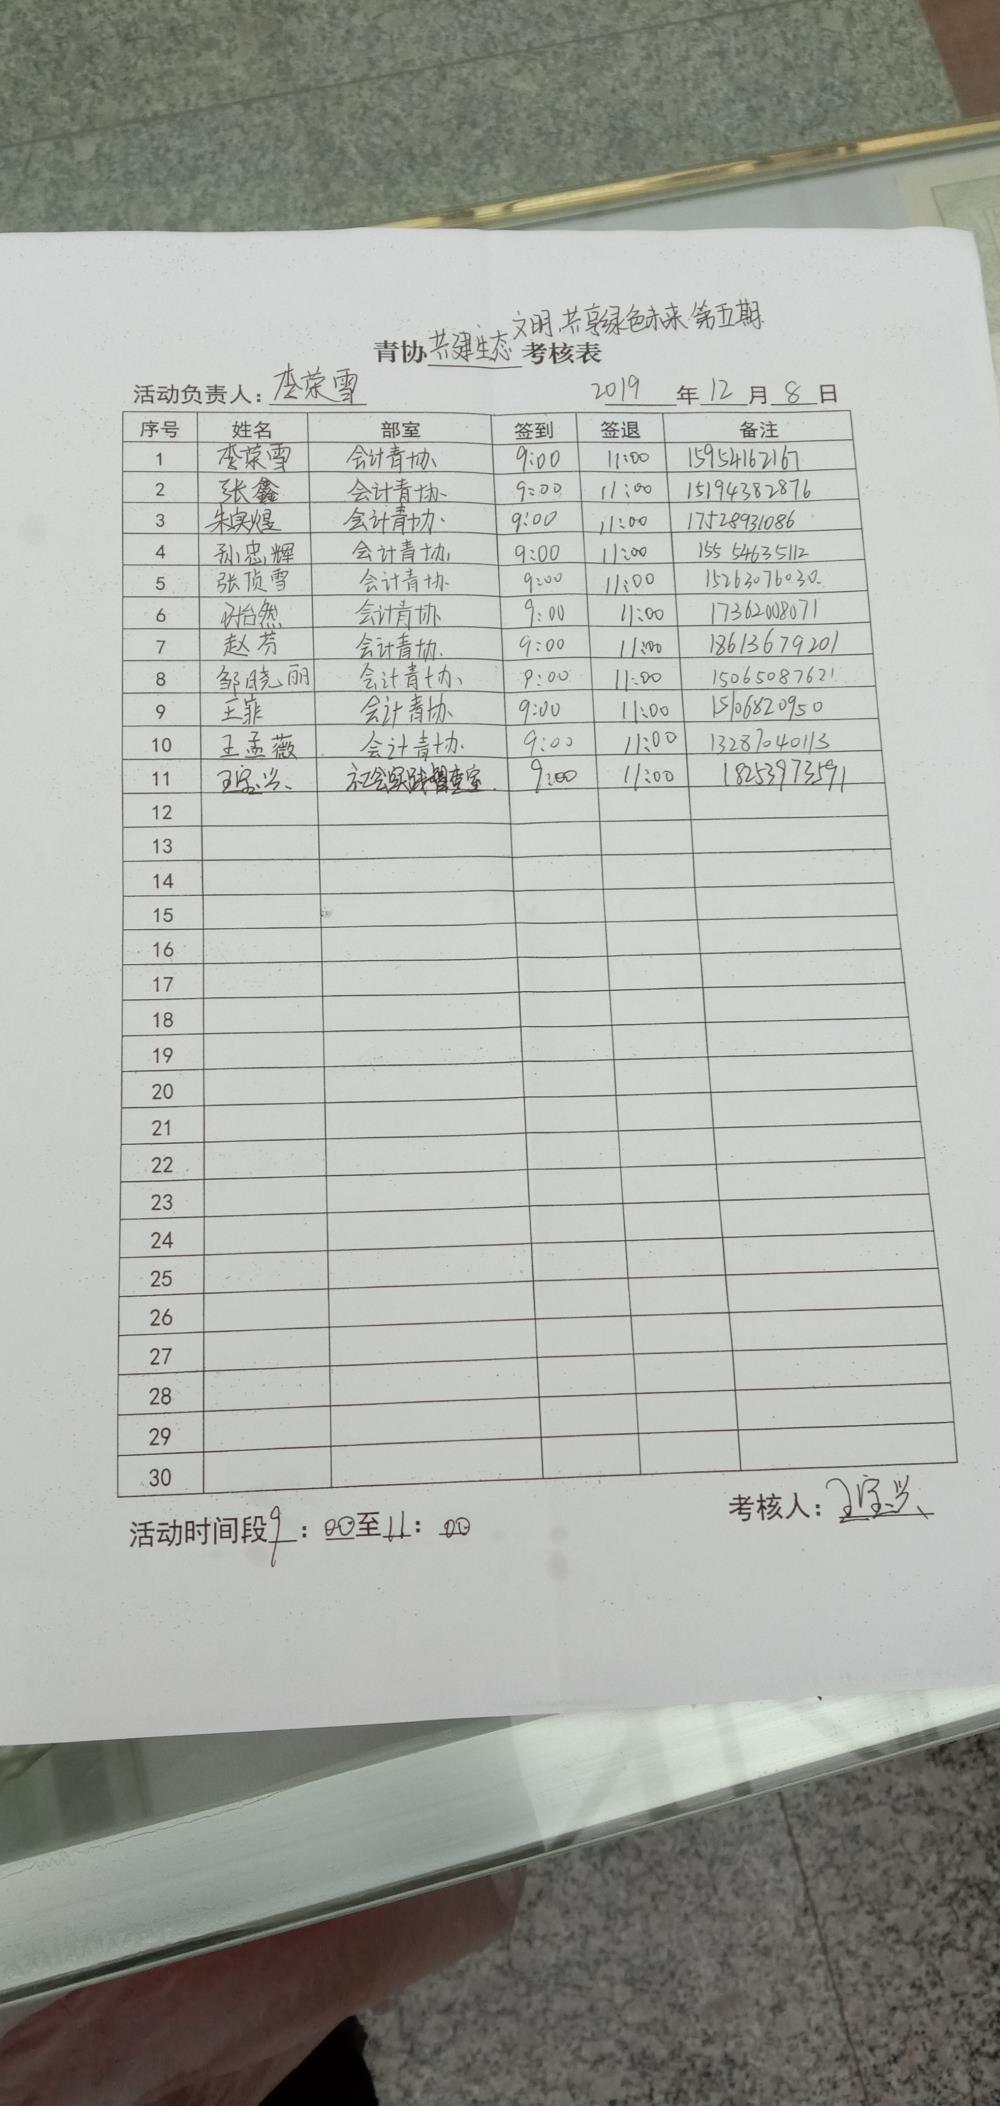 文明 共享绿色未来 第五期
青协共建生态考核表
活动负责人：李荣雪 2019年12月8日
序号 姓名 部室 签到 签退 备注
1 李荣雪 会计青协 9:00 11:00 15954162167
2 张鑫 会计青协 9:00 11:00 15194382876
3 会计青协 9:00 11:00 17528931086
4 孙忠辉 会计青协 9:00 11:00 15554635112
5 张顶雪 会计青协 9:00 11:00 15263076030
6 会计青协 9:00 11:00 17362008071
7 赵芬 会计青协 9:00 11:00 18613679201
8 邹晓丽 会计青协 9:00 11:00 15065087621
9 王菲 会计青协 9:00 11:00 15106820950
10 王孟薇 会计青协 9:00 11:00 13287040113
11 王宝兴 社会实践督查室 9:00 11:00 18253973591
12
13
14
15
16
17
18
19
20
21
22
23
24
25
26
27
28
29
30
活动时间段9：00至11：00 考核人：王宝兴